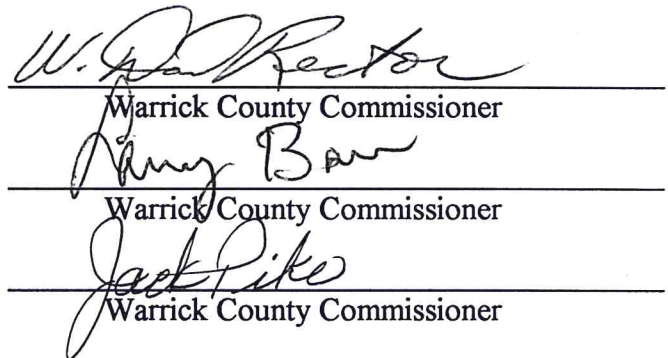 W. Don Rector
Warrick County Commissioner
Larry Barr
Warrick County Commissioner
Jack Pike
Warrick County Commissioner